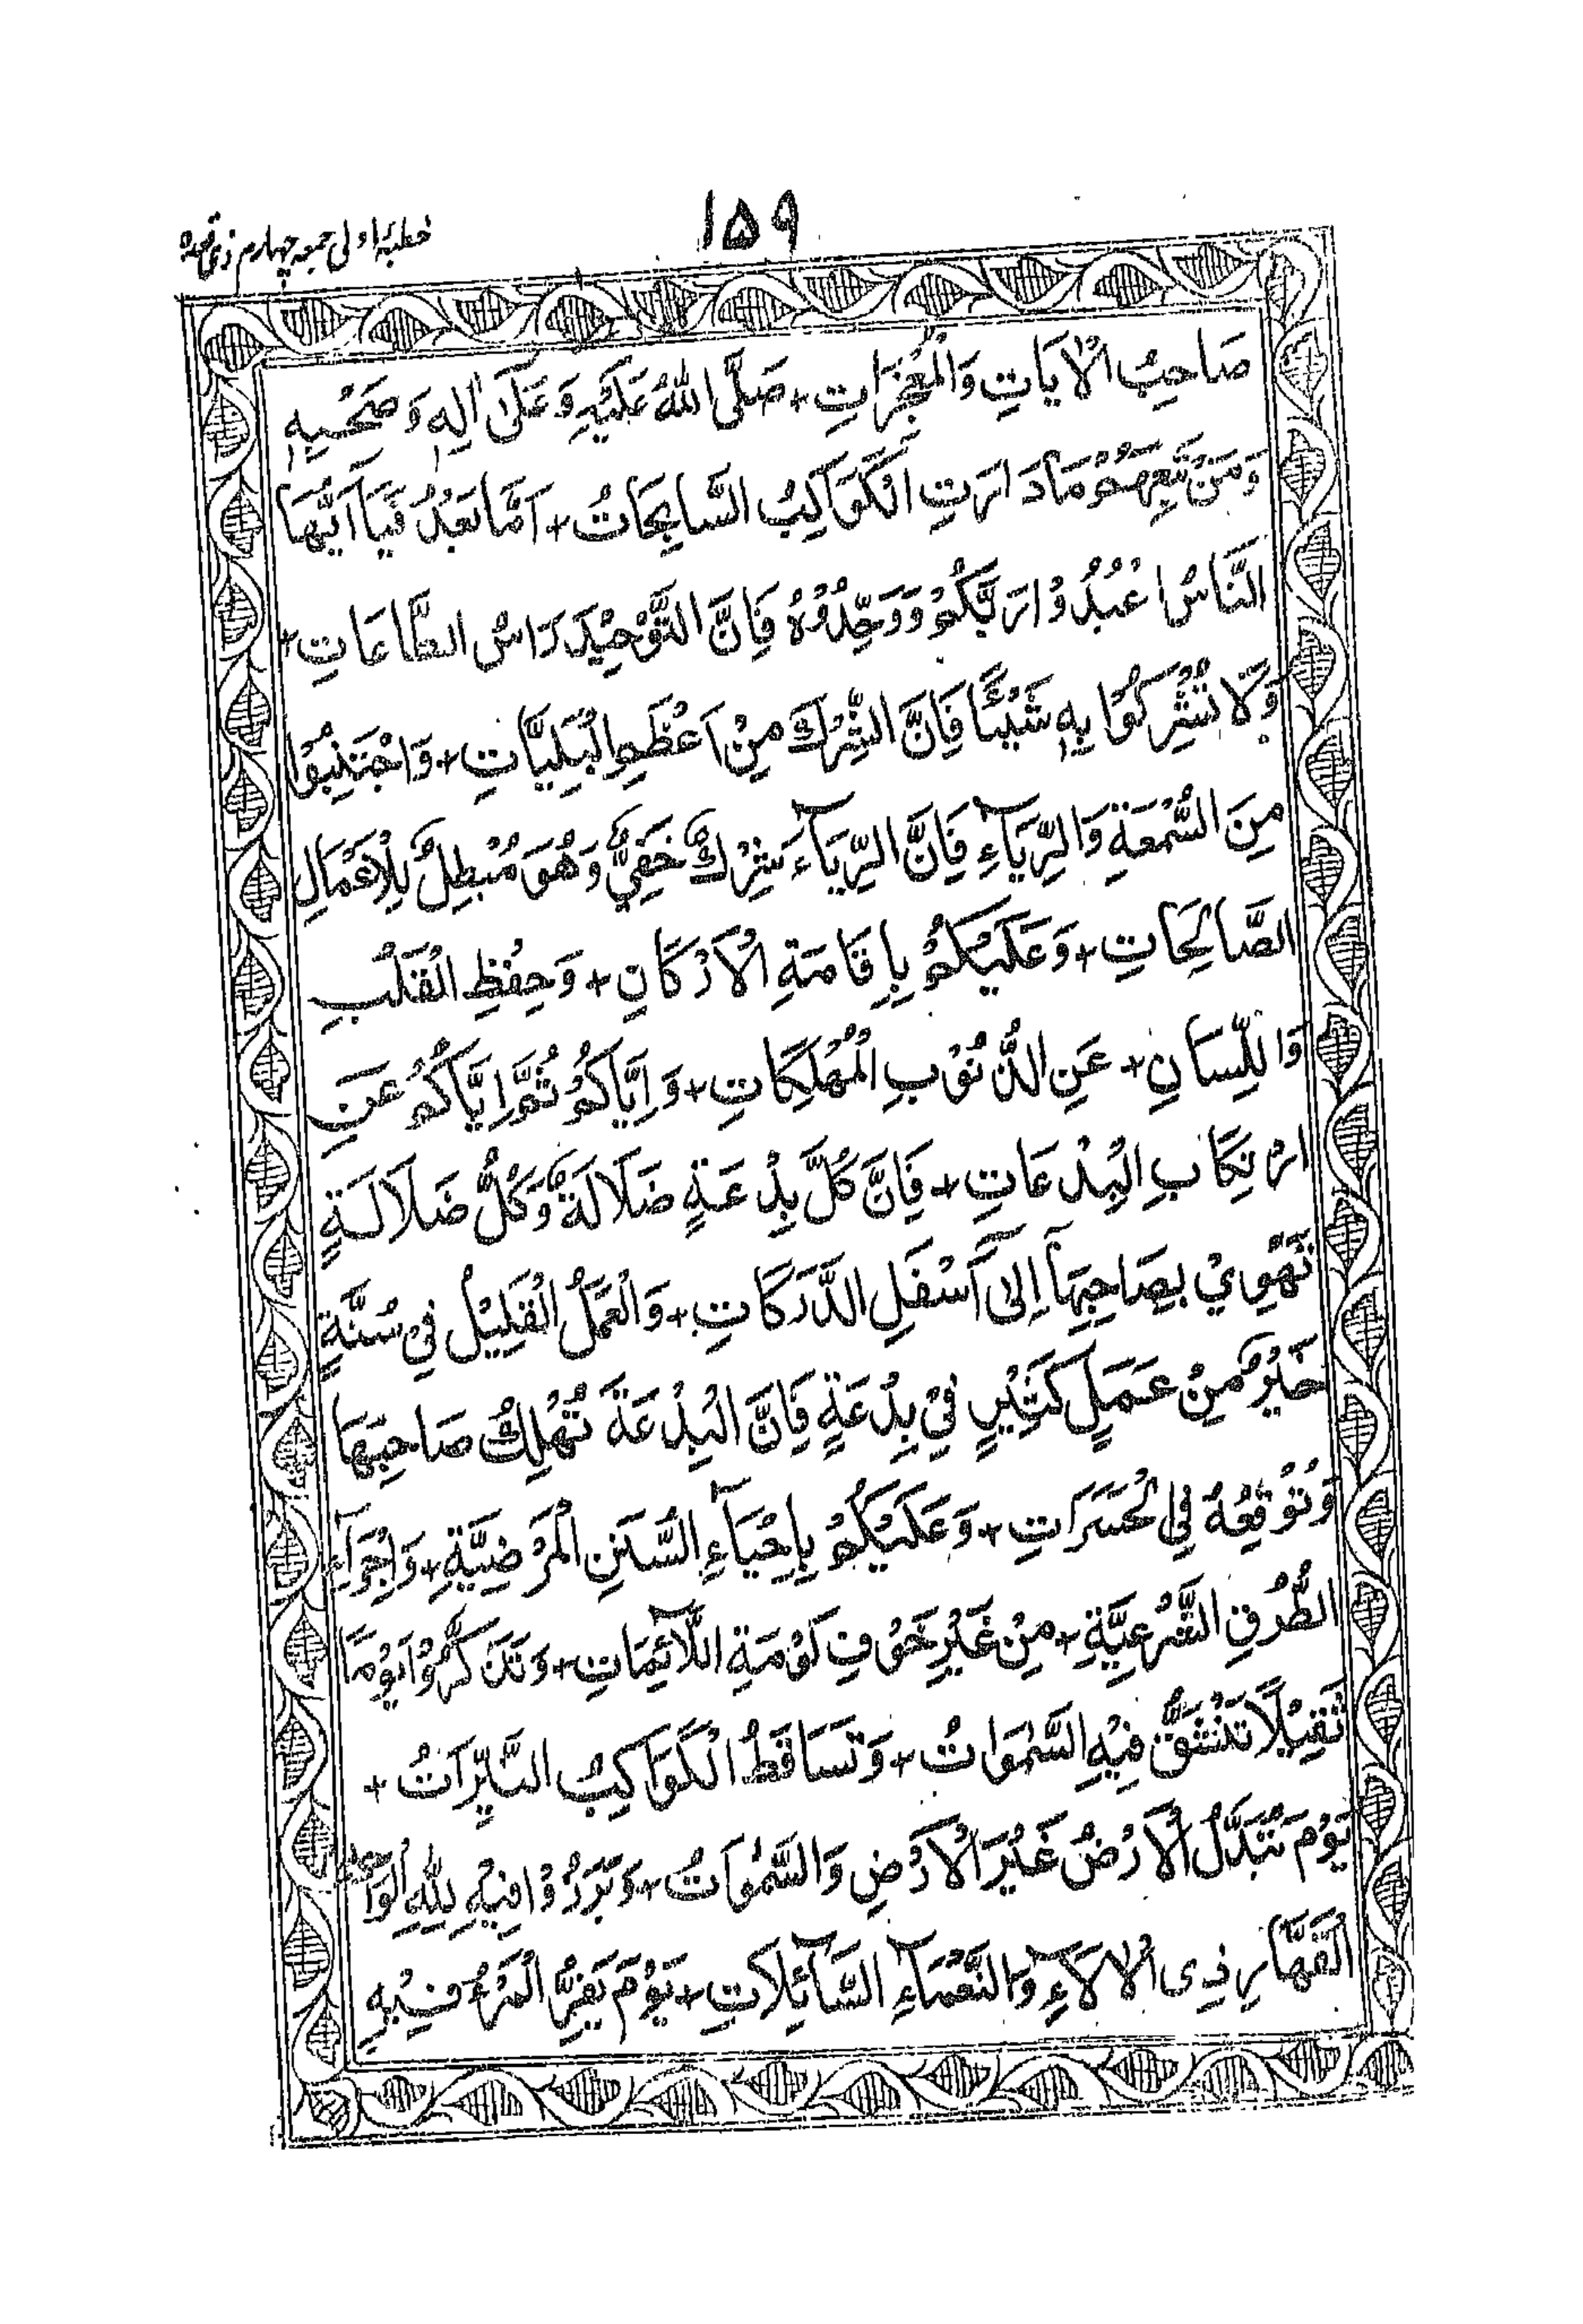 ۱۵۹
خطبۂ اولی جمعہ چہارم ذی قعدہ
صَاحِبُ الْاٰیَاتِ وَالْمُعْجِزَاتِ + صَلَّی اللّٰهُ عَلَیْهِ وَعَلٰی اٰلِهٖ وَصَحْبِهٖ
وَمَنْ تَبِعَهُمْ مَا دَارَتِ الْکَوَاکِبُ السَّابِحَاتُ + اَمَّا بَعْدُ فَیَا اَیُّهَا
النَّاسُ اعْبُدُوْا رَبَّکُمْ وَوَحِّدُوْهُ فَاِنَّ التَّوْحِیْدَ رَاسُ الطَّاعَاتِ +
وَلَا تُشْرِکُوْا بِهٖ شَیْئًا فَاِنَّ الشِّرْكَ مِنْ اَعْظَمِ الْبَلِیَّاتِ + وَاجْتَنِبُوْا
مِنَ السُّمْعَةِ وَالرِّیَآءِ فَاِنَّ الرِّیَآءَ شِرْكٌ خَفِیٌّ وَهُوَ مُبْطِلٌ لِلْاَعْمَالِ
الصَّالِحَاتِ + وَعَلَیْکُمْ بِاِقَامَةِ الْاَرْکَانِ + وَحِفْظِ الْقَلْبِ
وَاللِّسَانِ + عَنِ الذُّنُوْبِ الْمُهْلِکَاتِ + وَاِیَّاکُمْ ثُمَّ اِیَّاکُمْ عَنِ
ارْتِکَابِ الْبِدْعَاتِ + فَاِنَّ کُلَّ بِدْعَةٍ ضَلَالَةٌ وَکُلُّ ضَلَالَةٍ
تَهْوِیْ بِصَاحِبِهَآ اِلٰی اَسْفَلِ الدَّرَکَاتِ + وَالْعَمَلُ الْقَلِیْلُ فِیْ سُنَّةٍ
خَیْرٌ مِنْ عَمَلٍ کَثِیْرٍ فِیْ بِدْعَةٍ فَاِنَّ الْبِدْعَةَ تُهْلِكُ صَاحِبَهَا
وَتُوْقِعُهٗ فِی الْحَسَرَاتِ + وَعَلَیْکُمْ بِاِحْیَآءِ السُّنَنِ الْمَرْضِیَّةِ + وَاِجْرَآءِ
الطُّرُقِ الشَّرْعِیَّةِ + مِنْ غَیْرِ خَوْفِ لَوْمَةِ اللَّآئِمَاتِ + وَتَذَکَّرُوْا یَوْمًا
ثَقِیْلًا تَنْشَقُّ فِیْهِ السَّمٰوَاتُ + وَتَسَاقَطُ الْکَوَاکِبُ النَّیِّرَاتُ +
یَوْمَ تُبَدَّلُ الْاَرْضُ غَیْرَ الْاَرْضِ وَالسَّمٰوَاتُ + وَبَرَزُوْا فِیْهِ لِلّٰهِ الْوَاحِدِ
الْقَهَّارِ ذِی الْاٰلَآءِ وَالنَّعْمَآءِ السَّآئِلَاتِ + یَوْمَ یَفِرُّ الْمَرْءُ فِیْهِ